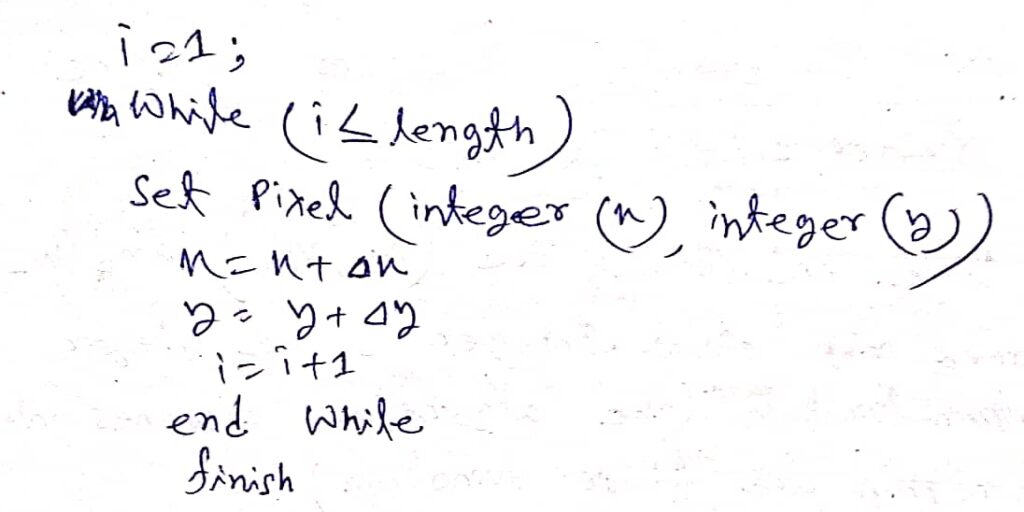 i=1;
While (i ≤ length)
Set Pixel (integer (x), integer (y))
x = x + Δx
y = y + Δy
i = i+1
end While
finish